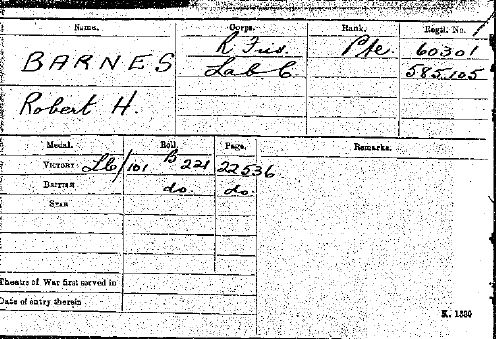 Name. Corps. Rank. Regtl. No.
BARNES R Fus. Pte. 60301
Lab C. 585105
Robert H.
Medal. Roll. Page. Remarks.
VICTORY Lb/101 B 221 22536
BRITISH do. do.
STAR
Theatre of War first served in
Date of entry therein
K. 1380